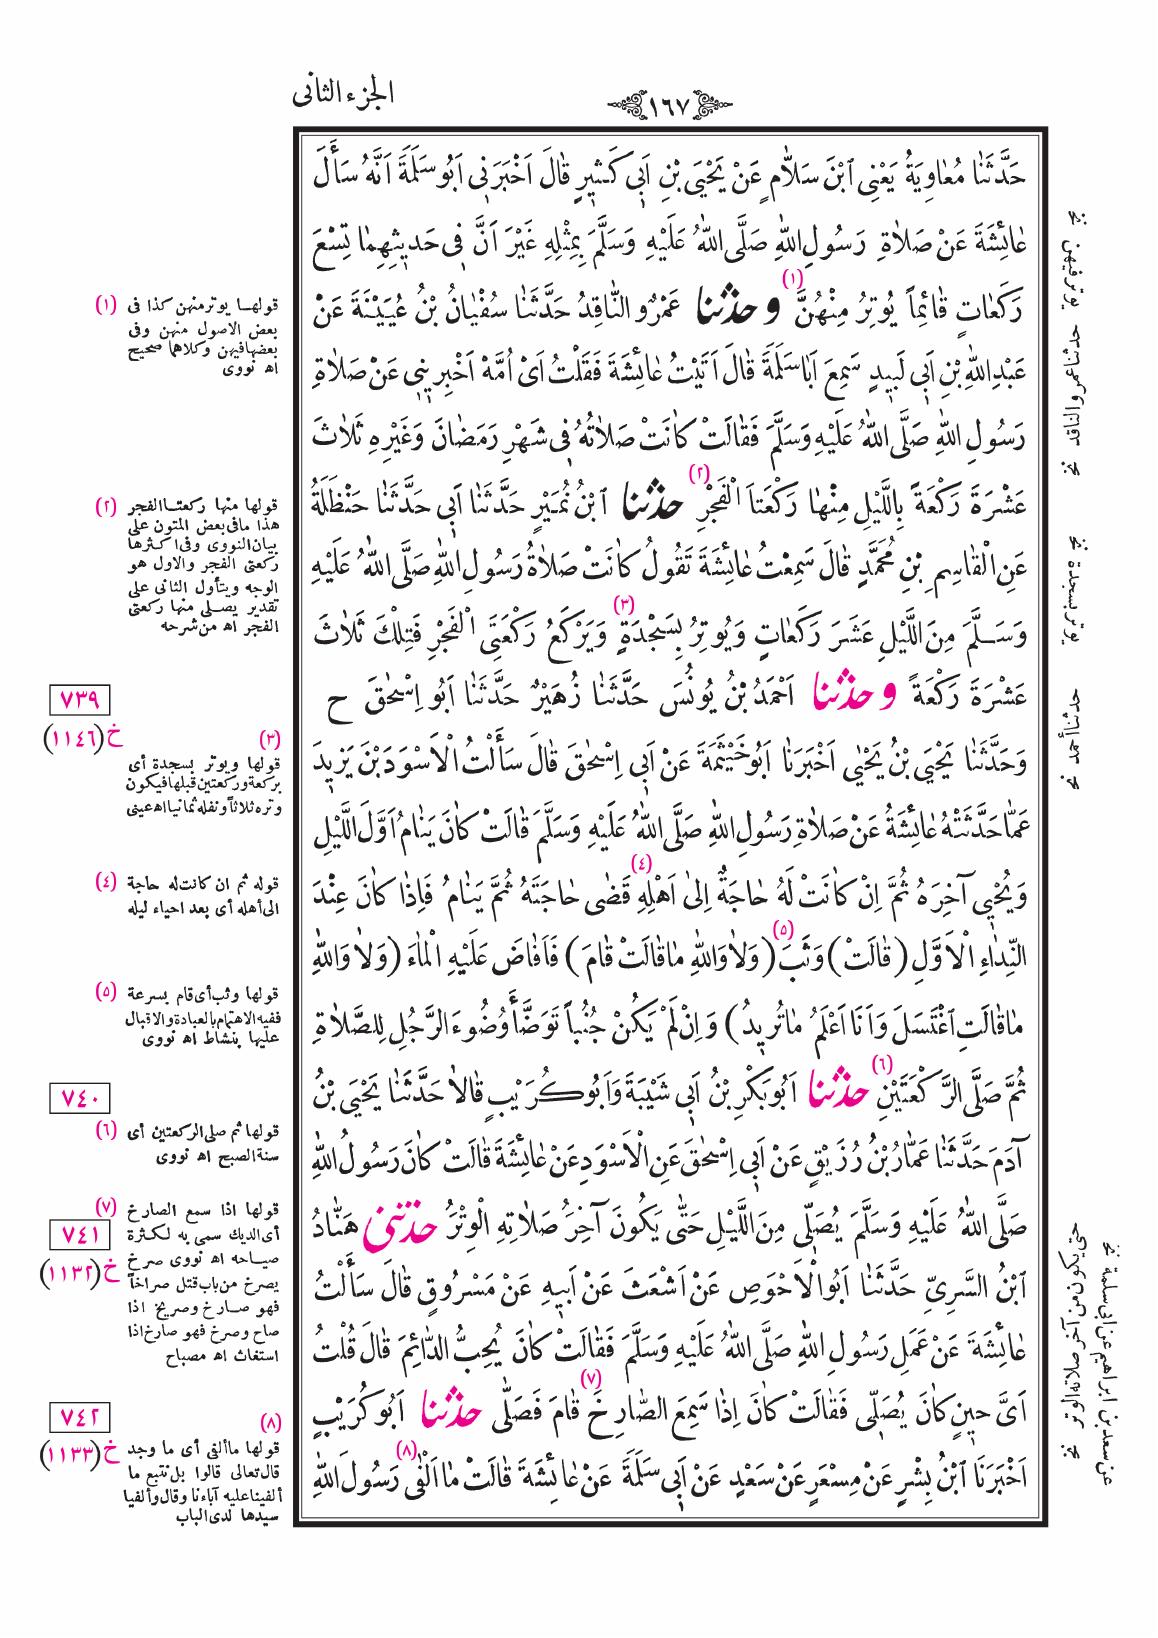 ١٦٧
الجزء الثانى
حَدَّثَنَا مُعَاوِيَةُ يَعْنِى ابْنَ سَلَّامٍ عَنْ يَحْيَى بْنِ اَبِى كَثِيرٍ قَالَ اَخْبَرَنِى اَبُوسَلَمَةَ اَنَّهُ سَأَلَ
عَائِشَةَ عَنْ صَلَاةِ رَسُولِ اللّٰهِ صَلَّى اللّٰهُ عَلَيْهِ وَسَلَّمَ بِمِثْلِهِ غَيْرَ اَنَّ فِى حَدِيثِهِمَا تِسْعَ
رَكَعَاتٍ قَائِمًا يُوتِرُ مِنْهُنَّ (١) و حدثنا عَمْرٌو النَّاقِدُ حَدَّثَنَا سُفْيَانُ بْنُ عُيَيْنَةَ عَنْ
عَبْدِاللّٰهِ بْنِ اَبِى لَبِيدٍ سَمِعَ اَبَاسَلَمَةَ قَالَ اَتَيْتُ عَائِشَةَ فَقُلْتُ اَىْ اُمَّهْ اَخْبِرِينِى عَنْ صَلَاةِ
رَسُولِ اللّٰهِ صَلَّى اللّٰهُ عَلَيْهِ وَسَلَّمَ فَقَالَتْ كَانَتْ صَلَاتُهُ فِى شَهْرِ رَمَضَانَ وَغَيْرِهِ ثَلَاثَ
عَشْرَةَ رَكْعَةً بِاللَّيْلِ مِنْهَا رَكْعَتَا الْفَجْرِ (٢) حدثنا ابْنُ نُمَيْرٍ حَدَّثَنَا اَبِى حَدَّثَنَا حَنْظَلَةُ
عَنِ الْقَاسِمِ بْنِ مُحَمَّدٍ قَالَ سَمِعْتُ عَائِشَةَ تَقُولُ كَانَتْ صَلَاةُ رَسُولِ اللّٰهِ صَلَّى اللّٰهُ عَلَيْهِ
وَسَلَّمَ مِنَ اللَّيْلِ عَشَرَ رَكَعَاتٍ وَيُوتِرُ بِسَجْدَةٍ (٣) وَيَرْكَعُ رَكْعَتَىِ الْفَجْرِ فَتِلْكَ ثَلَاثَ
عَشْرَةَ رَكْعَةً و حدثنا اَحْمَدُ بْنُ يُونُسَ حَدَّثَنَا زُهَيْرٌ حَدَّثَنَا اَبُو اِسْحٰقَ ح
وَحَدَّثَنَا يَحْيَى بْنُ يَحْيٰى اَخْبَرَنَا اَبُوخَيْثَمَةَ عَنْ اَبِى اِسْحٰقَ قَالَ سَأَلْتُ الْاَسْوَدَ بْنَ يَزِيدَ
عَمَّا حَدَّثَتْهُ عَائِشَةُ عَنْ صَلَاةِ رَسُولِ اللّٰهِ صَلَّى اللّٰهُ عَلَيْهِ وَسَلَّمَ قَالَتْ كَانَ يَنَامُ اَوَّلَ اللَّيْلِ
وَيُحْيِى آخِرَهُ ثُمَّ اِنْ كَانَتْ لَهُ حَاجَةٌ اِلٰى اَهْلِهِ (٤) قَضٰى حَاجَتَهُ ثُمَّ يَنَامُ فَاِذَا كَانَ عِنْدَ
النِّدَاءِ الْاَوَّلِ (قَالَتْ) وَثَبَ (٥) (وَلَا وَاللّٰهِ مَا قَالَتْ قَامَ) فَاَفَاضَ عَلَيْهِ الْمَاءَ (وَلَا وَاللّٰهِ
مَا قَالَتِ اغْتَسَلَ وَاَنَا اَعْلَمُ مَا تُرِيدُ) وَاِنْ لَمْ يَكُنْ جُنُبًا تَوَضَّأَ وُضُوءَ الرَّجُلِ لِلصَّلَاةِ
ثُمَّ صَلَّى الرَّكْعَتَيْنِ (٦) حدثنا اَبُوبَكْرِ بْنُ اَبِى شَيْبَةَ وَاَبُوكُرَيْبٍ قَالَا حَدَّثَنَا يَحْيَى بْنُ
آدَمَ حَدَّثَنَا عَمَّارُ بْنُ رُزَيْقٍ عَنْ اَبِى اِسْحٰقَ عَنِ الْاَسْوَدِ عَنْ عَائِشَةَ قَالَتْ كَانَ رَسُولُ اللّٰهِ
صَلَّى اللّٰهُ عَلَيْهِ وَسَلَّمَ يُصَلِّى مِنَ اللَّيْلِ حَتّٰى يَكُونَ آخِرَ صَلَاتِهِ الْوِتْرُ حدثنى هَنَّادُ
ابْنُ السَّرِىِّ حَدَّثَنَا اَبُوالْاَحْوَصِ عَنْ اَشْعَثَ عَنْ اَبِيهِ عَنْ مَسْرُوقٍ قَالَ سَأَلْتُ
عَائِشَةَ عَنْ عَمَلِ رَسُولِ اللّٰهِ صَلَّى اللّٰهُ عَلَيْهِ وَسَلَّمَ فَقَالَتْ كَانَ يُحِبُّ الدَّائِمَ قَالَ قُلْتُ
اَىَّ حِينٍ كَانَ يُصَلِّى فَقَالَتْ كَانَ اِذَا سَمِعَ الصَّارِخَ (٧) قَامَ فَصَلّٰى حدثنا اَبُوكُرَيْبٍ
اَخْبَرَنَا ابْنُ بِشْرٍ عَنْ مِسْعَرٍ عَنْ سَعْدٍ عَنْ اَبِى سَلَمَةَ عَنْ عَائِشَةَ قَالَتْ مَا اَلْفٰى (٨) رَسُولَ اللّٰهِ
(١) قولها يوتر منهن كذا فى
بعض الاصول منهن وفى
بعضها فيهن وكلاهما صحيح
اه نووى
(٢) قولها منها ركعتا الفجر
هذا ما فى بعض المتون على
بيان النووى وفى اكثرها
ركعتى الفجر والاول هو
الوجه ويتأول الثانى على
تقدير يصلى منها ركعتى
الفجر اه من شرحه
٧٣٩
خ (١١٤٦)
(٣)
قولها ويوتر بسجدة أى
بركعة وركعتين قبلها فيكون
وتره ثلاثاً ونفله ثمانيا اه عينى
(٤) قوله ثم ان كانت له حاجة
الى أهله أى بعد احياء ليله
(٥) قولها وثب أى قام بسرعة
ففيه الاهتمام بالعبادة والاقبال
عليها بنشاط اه نووى
٧٤٠
(٦) قولها ثم صلى الركعتين أى
سنة الصبح اه نووى
(٧) قولها اذا سمع الصارخ
أى الديك سمى به لكثرة
صياحه اه نووى صرخ
يصرخ من باب قتل صراخاً
فهو صارخ وصريخ اذا
صاح وصرخ فهو صارخ اذا
استغاث اه مصباح
٧٤١
خ (١١٣٢)
٧٤٢
خ (١١٣٣)
(٨)
قولها ما ألفى أى ما وجد
قال تعالى قالوا بل نتبع ما
ألفينا عليه آباءنا وقال وألفيا
سيدها لدى الباب
يوتر فيهن نخ
حدثنا عمرو الناقد نخ
يوتر بسجدة نخ
حدثنا أحمد نخ
حتى يكون من آخر صلاته الوتر نخ
عن سعد بن ابراهيم عن ابى سلمة نخ